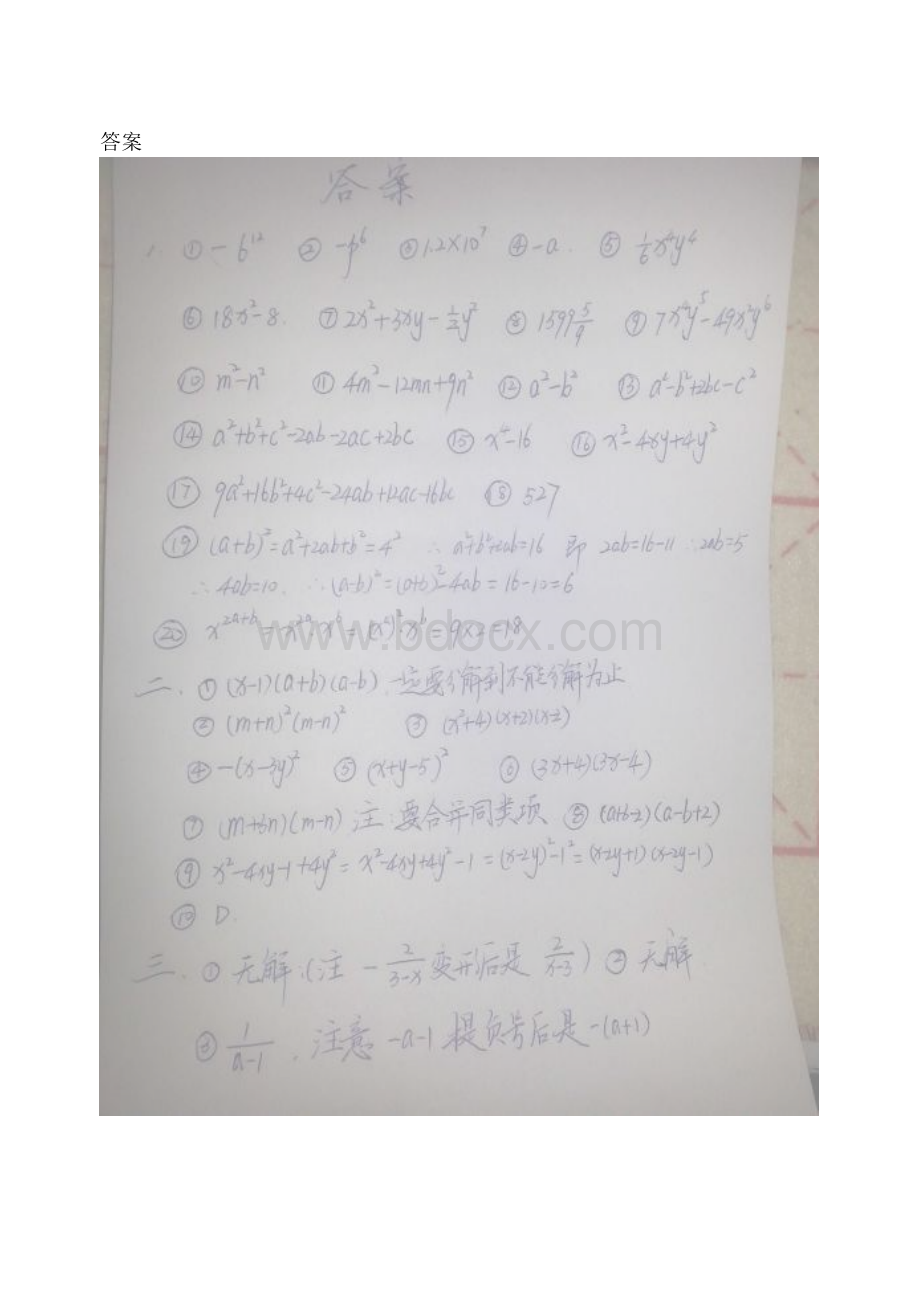 答案
答案
1. ① -b¹² ② -p⁶ ③ 1.2×10⁷ ④ -a. ⑤ 1/6 x⁴y⁴
⑥ 18x²-8. ⑦ 2x²+3xy-1/2y² ⑧ 1599 5/9 ⑨ 7x⁴y⁵-49x²y⁶
⑩ m²-n² ⑪ 4m²-12mn+9n² ⑫ a²-b² ⑬ a²-b²+2bc-c²
⑭ a²+b²+c²-2ab-2ac+2bc ⑮ x⁴-16 ⑯ x²-4xy+4y²
⑰ 9a²+16b²+4c²-24ab+12ac-16bc ⑱ 527
⑲ (a+b)²=a²+2ab+b²=4² ∴ a²+b²+2ab=16 即 2ab=16-11 ∴2ab=5
∴ 4ab=10. ∴ (a-b)²=(a+b)²-4ab=16-10=6
⑳ x²ᵃ⁺ᵇ=x²ᵃ·xᵇ=(xᵃ)²·xᵇ=9×2=18
www.bdocx.com
二、① (x-1)(a+b)(a-b). 一定要分解到不能分解为止
② (m+n)²(m-n)² ③ (x²+4)(x+2)(x-2)
④ -(x-3y)² ⑤ (x+y-5)² ⑥ (3x+4)(3x-4)
⑦ (m+6n)(m-n) 注:要合并同类项 ⑧ (a+b-2)(a-b+2)
⑨ x²-4xy-1+4y²=x²-4xy+4y²-1=(x-2y)²-1²=(x-2y+1)(x-2y-1)
⑩ D.
三、① 无解.(注 -2/(3-x) 变形后是 2/(x-3)) ② 无解.
③ 1/(a-1). 注意 -a-1 提负号后是 -(a+1)